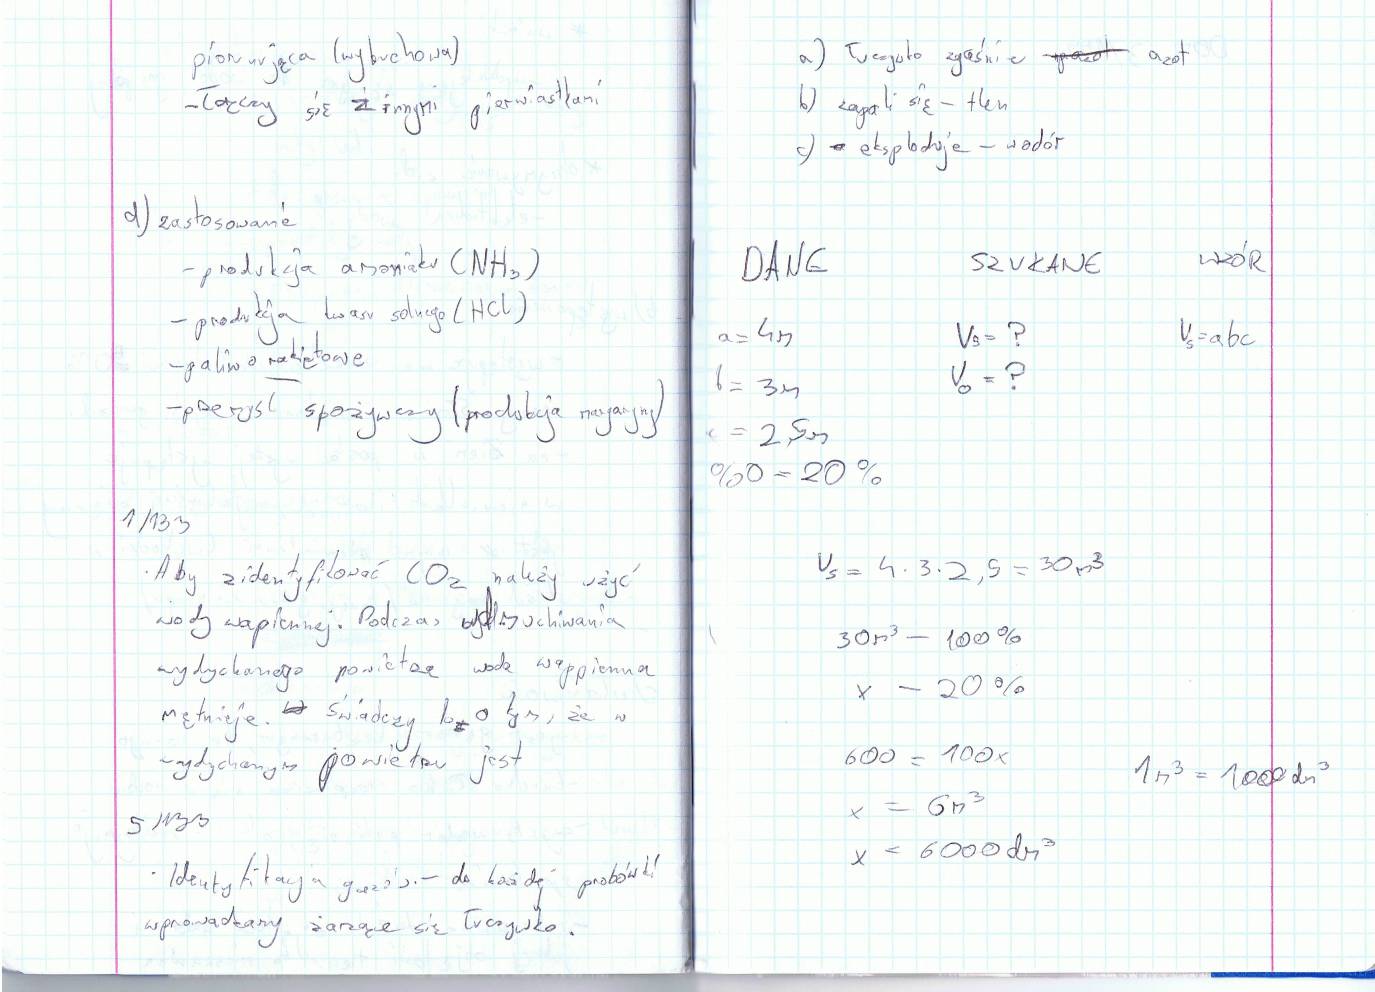 piorunująca (wybuchowa)
- Łączy się z innymi pierwiastkami
d) zastosowanie
- produkcja amoniaku (NH3)
- produkcja kwasu solnego (HCl)
- paliwo rakietowe
- przemysł spożywczy (produkcja margaryny)
1/133
· Aby zidentyfikować CO2 należy użyć
wody wapiennej. Podczas wydmuchiwania
wydychanego powietrza woda wappienna
mętnieje. świadczy to o tym, że w
wydychanym powietrzu jest
5/133
· Identyfikacja gazów. - do każdej probówki
wprowadzamy żarzące się łuczywko.
a) Łuczywko zgaśnie azot
b) zapali się - tlen
c) eksploduje - wodór
DANE SZUKANE WZÓR
a = 4m Vs = ? Vs = abc
b = 3m Vo = ?
c = 2,5m
%O = 20%
Vs = 4 · 3 · 2,5 = 30m³
30m³ - 100%
x - 20%
600 = 100x 1m³ = 1000dm³
x = 6m³
x = 6000dm³